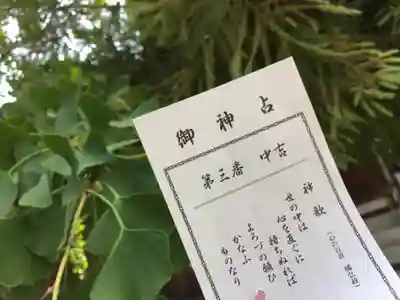 御神占
第三番 中吉
神歌
世の中は
心を直ぐに
持ちぬれば
よろづの願ひ
かなふ
ものなり